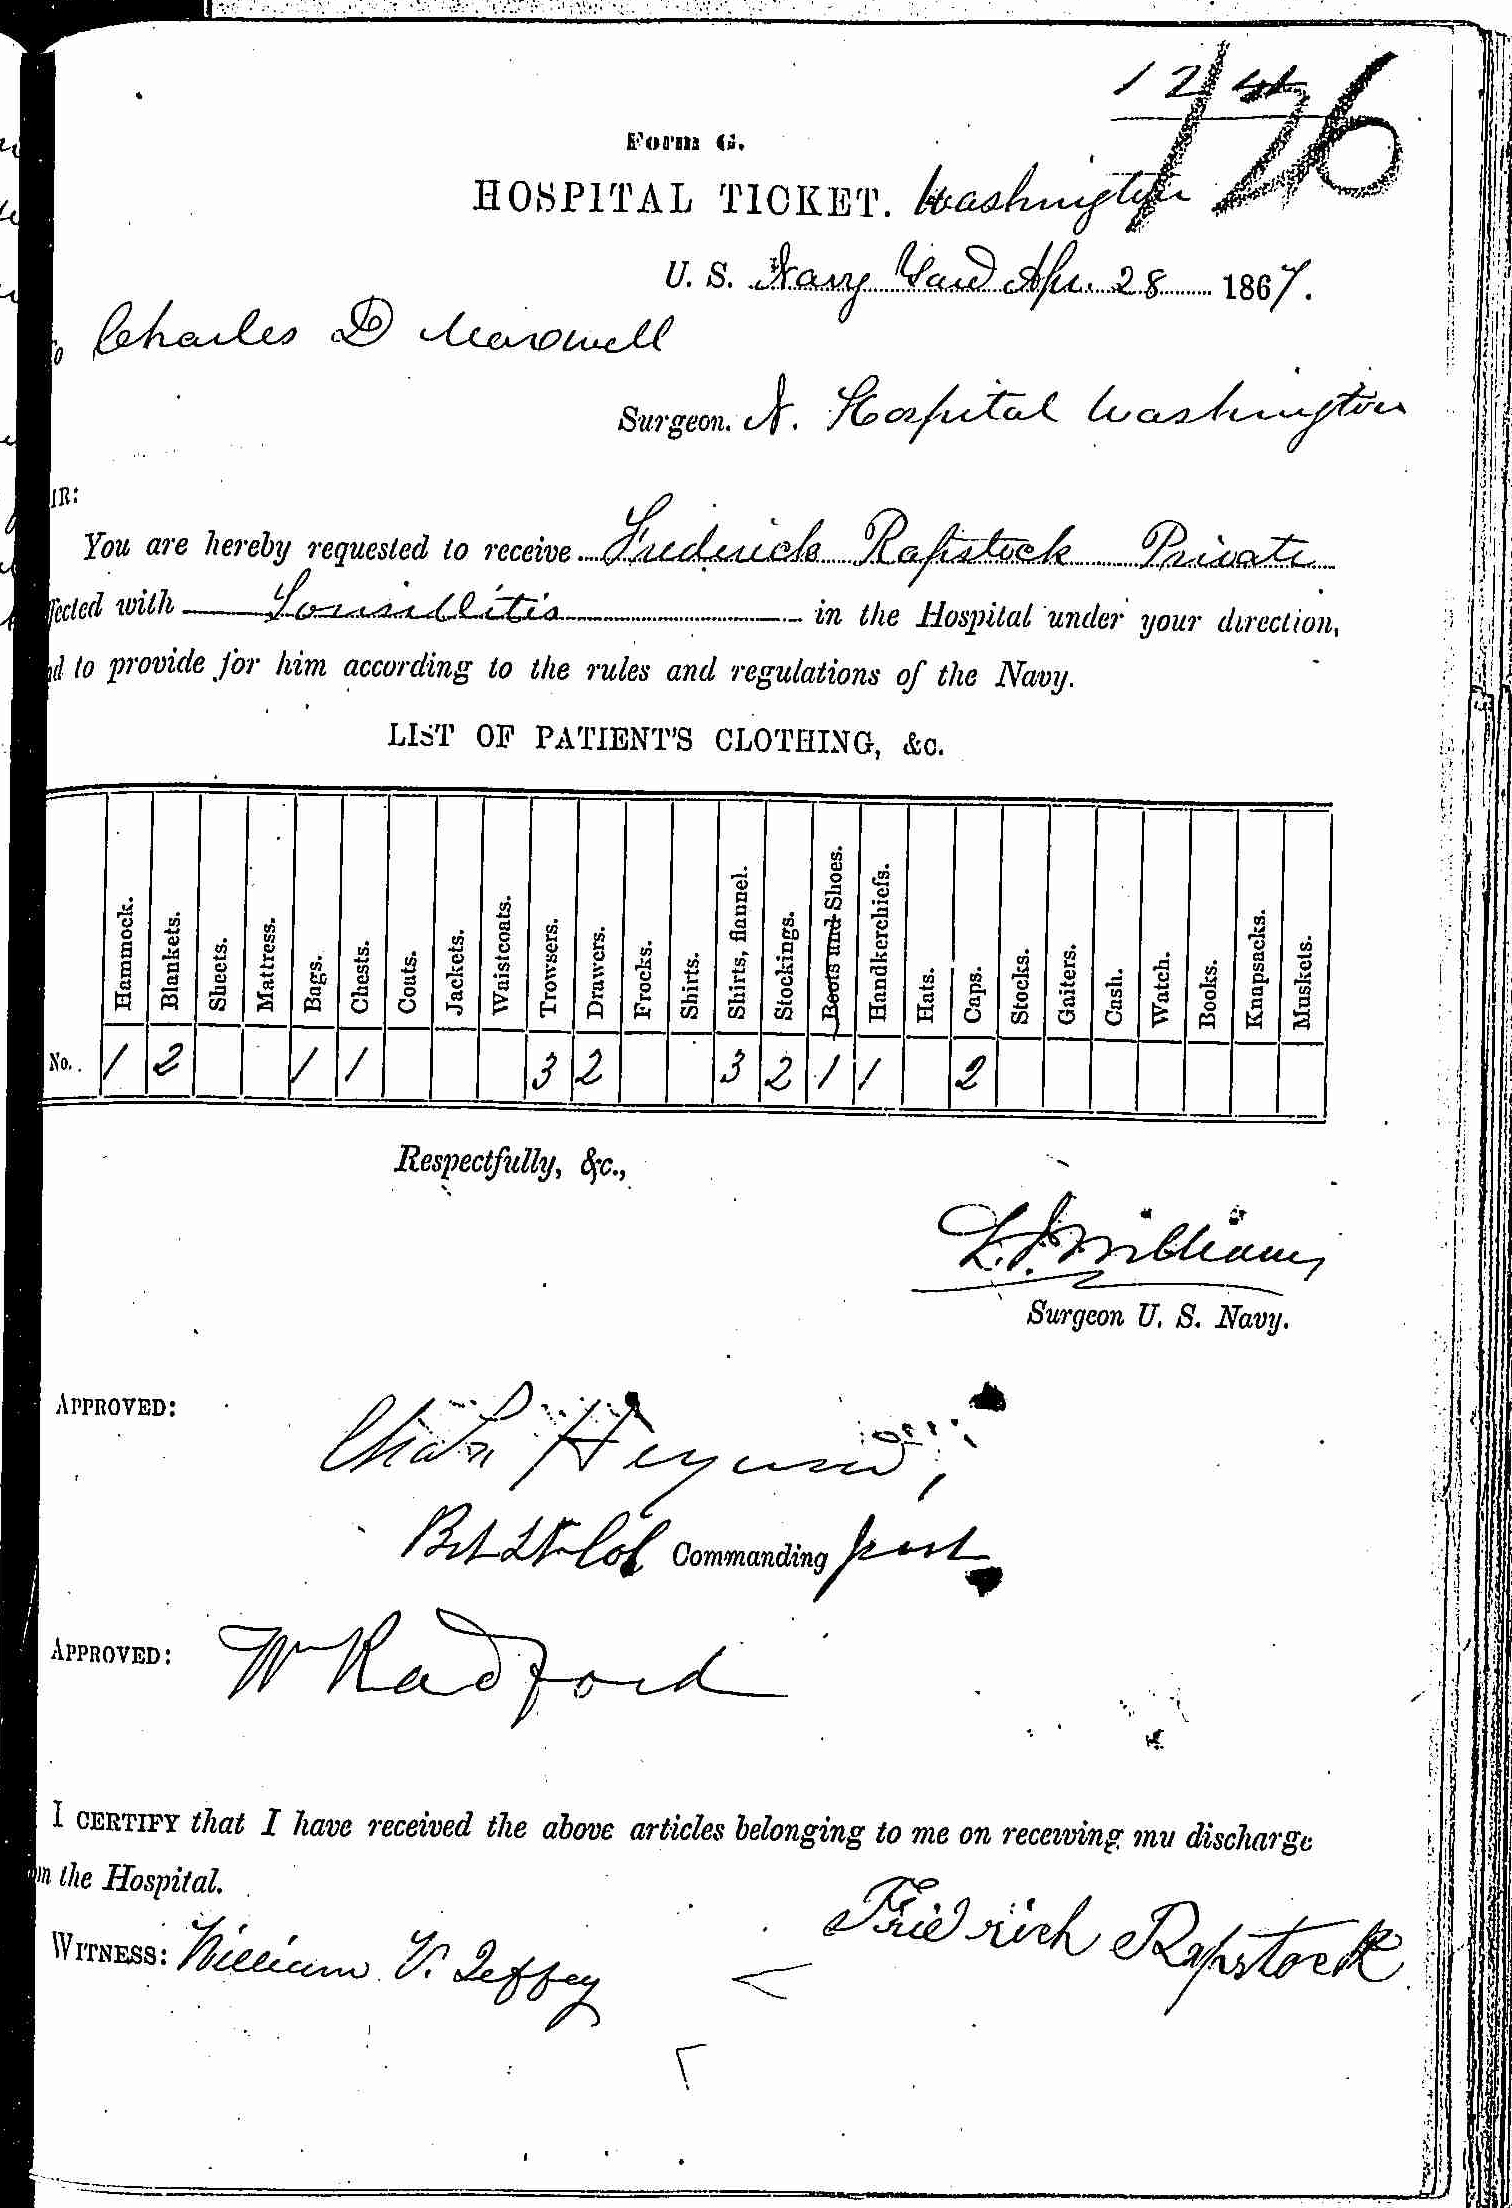 126
Form G.
HOSPITAL TICKET. Washington
U. S. Navy Yard Apr. 28 1867.
To Charles D Maxwell
Surgeon. N. Hospital Washington
IR:
You are hereby requested to receive Frederick Rapstock Private
fected with Tonsillitis in the Hospital under your direction,
nd to provide for him according to the rules and regulations of the Navy.
LIST OF PATIENT'S CLOTHING, &c.
Hammock. Blankets. Sheets. Mattress. Bags. Chests. Coats. Jackets. Waistcoats. Trowsers. Drawers. Frocks. Shirts. Shirts, flannel. Stockings. Boots and Shoes. Handkerchiefs. Hats. Caps. Stocks. Gaiters. Cash. Watch. Books. Knapsacks. Muskets.
No. 1 2 1 1 3 2 3 2 1 1 2
Respectfully, &c.,
Williams
Surgeon U. S. Navy.
APPROVED:
Chas Heywood,
Bvt Lt Col Commanding post
APPROVED: W Radford
I CERTIFY that I have received the above articles belonging to me on receiving my discharge
om the Hospital.
Friedrich Rapstock
WITNESS: William V. Jeffey